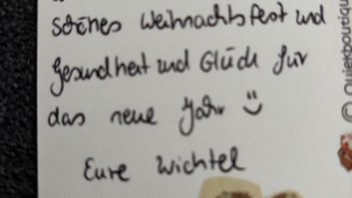 schönes Weihnachtsfest und
Gesundheit und Glück für
das neue Jahr :)
Eure Wichtel
© Quiekboutiqu